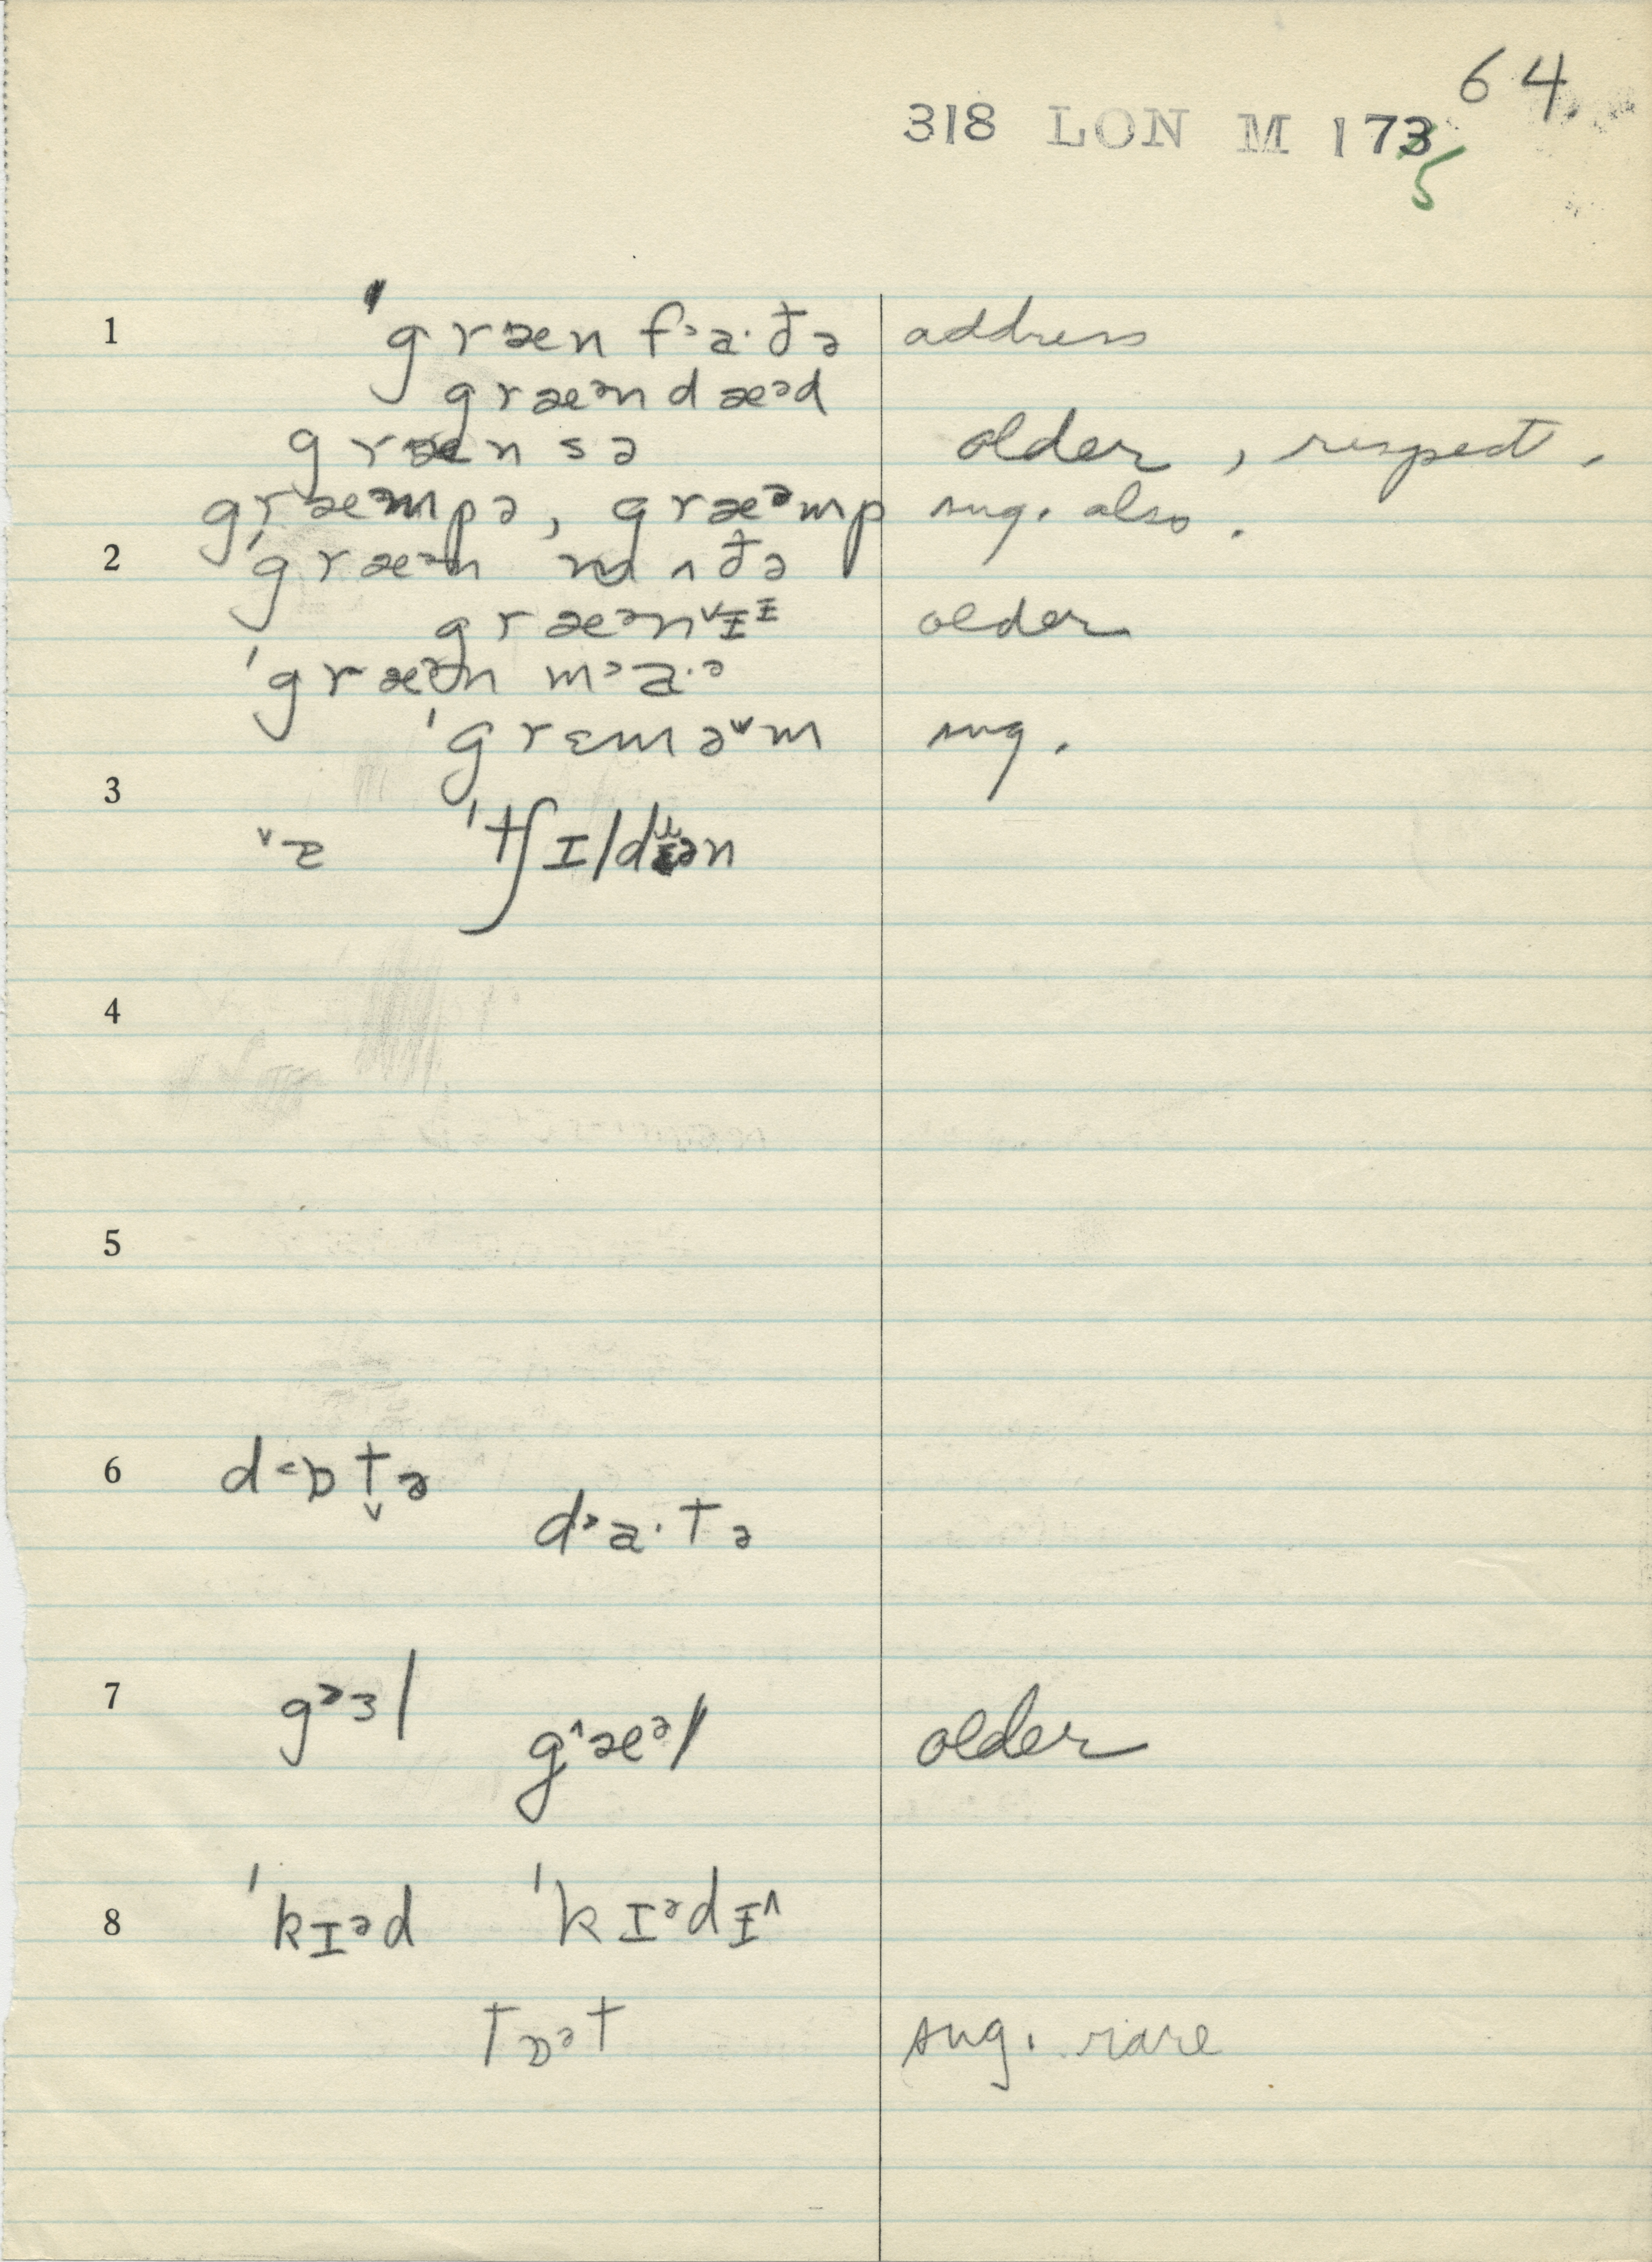 64.
318 LON M 173
5
1 ˈgræn f˃a·ðə address
græᵊn dæᵊd
græn sə older, respect.
græᵊmpə, græᵊmp sug. also.
2 ˈgræᵊn mʌðə
græᵊn˅ɪ̵ᶦ̵ older
ˈgræᵊn m˃a·ᵊ
ˈgrɛmə˅m sug.
3 ˅ɛ ˈtʃɪld ən
4
5
6 d˂ɒt̬ə d˃a·tə
7 g˃ɜl g˄æᵊl older
8 ˈkɪᵊd ˈkɪᵊdɪ̵˄
tɒᵊt sug. rare